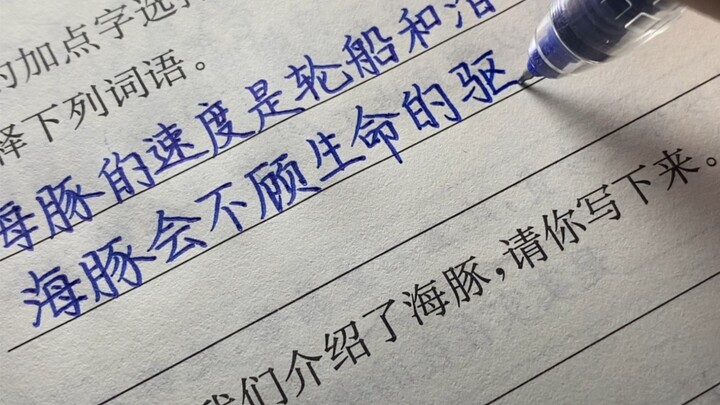 的加点字选
择下列词语。
海豚的速度是轮船和
海豚会不顾生命的驱
我们介绍了海豚,请你写下来。